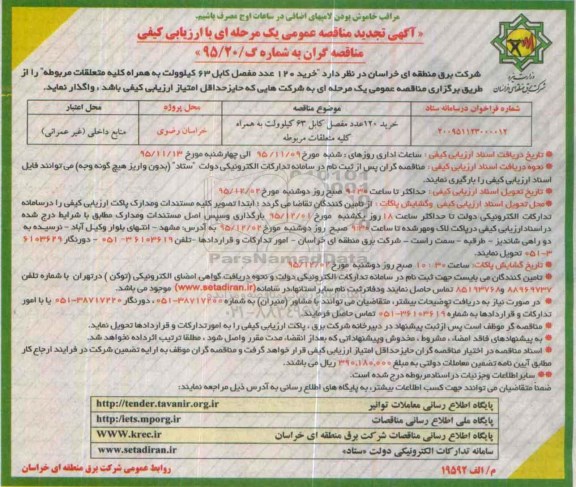 مراقب خاموش بودن لامپهای اضافی در ساعات اوج مصرف باشیم.
« آگهی تجدید مناقصه عمومی یک مرحله ای با ارزیابی کیفی
مناقصه گران به شماره گ/۹۵/۲۰ »
شرکت برق منطقه ای خراسان در نظر دارد "خرید ۱۲۰ عدد مفصل کابل ۶۳ کیلوولت به همراه کلیه متعلقات مربوطه" را از
طریق برگزاری مناقصه عمومی یک مرحله ای به شرکت هایی که حایزحداقل امتیاز ارزیابی کیفی باشد ، واگذار نماید.
شماره فراخوان درسامانه ستاد موضوع مناقصه محل پروژه محل اعتبار
۲۰۰۹۵۱۱۲۳۰۰۰۰۱۲ خرید ۱۲۰عدد مفصل کابل ۶۳ کیلوولت به همراه کلیه متعلقات مربوطه خراسان رضوی منابع داخلی (غیر عمرانی)
تاریخ دریافت اسناد ارزیابی کیفی : ساعات اداری روزهای : شنبه مورخ ۹۵/۱۱/۰۹ الی چهارشنبه مورخ ۹۵/۱۱/۱۳
نحوه دریافت اسناد ارزیابی کیفی : مناقصه گران پس از ثبت نام در سامانه تدارکات الکترونیکی دولت "ستاد" (بدون واریز هیچ گونه وجه) می توانند فایل
اسناد ارزیابی کیفی را بارگیری نمایند.
تاریخ تحویل اسناد ارزیابی کیفی : حداکثر تا ساعت ۹:۳۰ صبح روز دوشنبه مورخ
محل تحویل اسناد ارزیابی کیفی وگشایش پاکات : از تامین کنندگان تقاضا می گردد : ابتدا تصویر کلیه مستندات ومدارک پاکت ارزیابی کیفی را درسامانه
تدارکات الکترونیکی دولت تا حداکثر ساعت ۱۸ روز یکشنبه مورخ بارگذاری وسپس اصل مستندات ومدارک مطابق با شرایط درج شده
دراسنادارزیابی کیفی درپاکت لاک ومهرشده تا ساعت ۹:۳۰ صبح روز دوشنبه مورخ ۹۵/۱۲/۰۲ به آدرس: مشهد – انتهای بلوار وکیل آباد – نرسیده به
دو راهی شاندیز – طرقبه – سمت راست – شرکت برق منطقه ای خراسان – امور تدارکات و قراردادها –تلفن ۳۶۱۰۳۶۱۹-۰۵۱ – دورنگار ۳۶۱۰۳۶۲۹
-۰۵۱ تحویل نمایند.
تاریخ گشایش پاکات: ساعت ۱۰:۳۰ صبح روز دوشنبه مورخ ۹۵/۱۲/۰۲
تامین کنندگان می بایست جهت ثبت نام در سامانه تدارکات الکترونیکی دولت و نحوه دریافت گواهی امضای الکترونیکی (توکن ) درتهران با شماره تلفن
۸۸۹۶۹۷۳۷ و ۸۵۱۹۳۷۶۸ تماس حاصل نمایند ودفاترثبت نام سایر استانهادر سامانه(www.setadiran.ir) موجود می باشد.
در صورت نیاز به دریافت توضیحات بیشتر، متقاضیان می توانند با مشاور (منیران) به شماره ۳۸۷۱۷۲۰۰-۰۵۱، دورنگار ۳۸۷۱۷۲۲۰-۰۵۱ یا با امور
تدارکات و قراردادها به شماره ۳۶۱۰۳۶۱۹-۰۵۱ تماس حاصل فرمایند.
مناقصه گر موظف است پس ازثبت پیشنهاد در دبیرخانه شرکت برق ، پاکت ارزیابی کیفی را به امورتدارکات و قراردادها تحویل نماید.
به پیشنهادهای فاقد امضاء، مشروط ، مخدوش وپیشنهاداتی که بعداز انقضاء مدت مقرر واصل شود ، مطلقا ترتیب اثرداده نخواهد شد.
اسناد مناقصه در اختیار مناقصه گران حایزحداقل امتیاز ارزیابی کیفی قرار خواهد گرفت و مناقصه گران موظف به ارایه تضمین شرکت در فرایند ارجاع کار
مطابق آیین نامه تضمین معاملات دولتی به مبلغ ۳۹۰,۱۸۰,۰۰۰ ریال می باشند.
سایر اطلاعات وجزئیات در اسنادمربوطه درج شده است.
ضمنا متقاضیان می توانند جهت کسب اطلاعات بیشتر، به پایگاه های اطلاع رسانی به آدرس ذیل مراجعه نمایند:
پایگاه اطلاع رسانی معاملات توانیر http://tender.tavanir.org.ir
پایگاه ملی اطلاع رسانی مناقصات http:/iets.mporg.ir
پایگاه اطلاع رسانی مناقصات شرکت برق منطقه ای خراسان WWW.krec.ir
سامانه تدارکات الکترونیکی دولت «ستاد» www.setadiran.ir
م/الف ۱۹۵۹۲
روابط عمومی شرکت برق منطقه ای خراسان